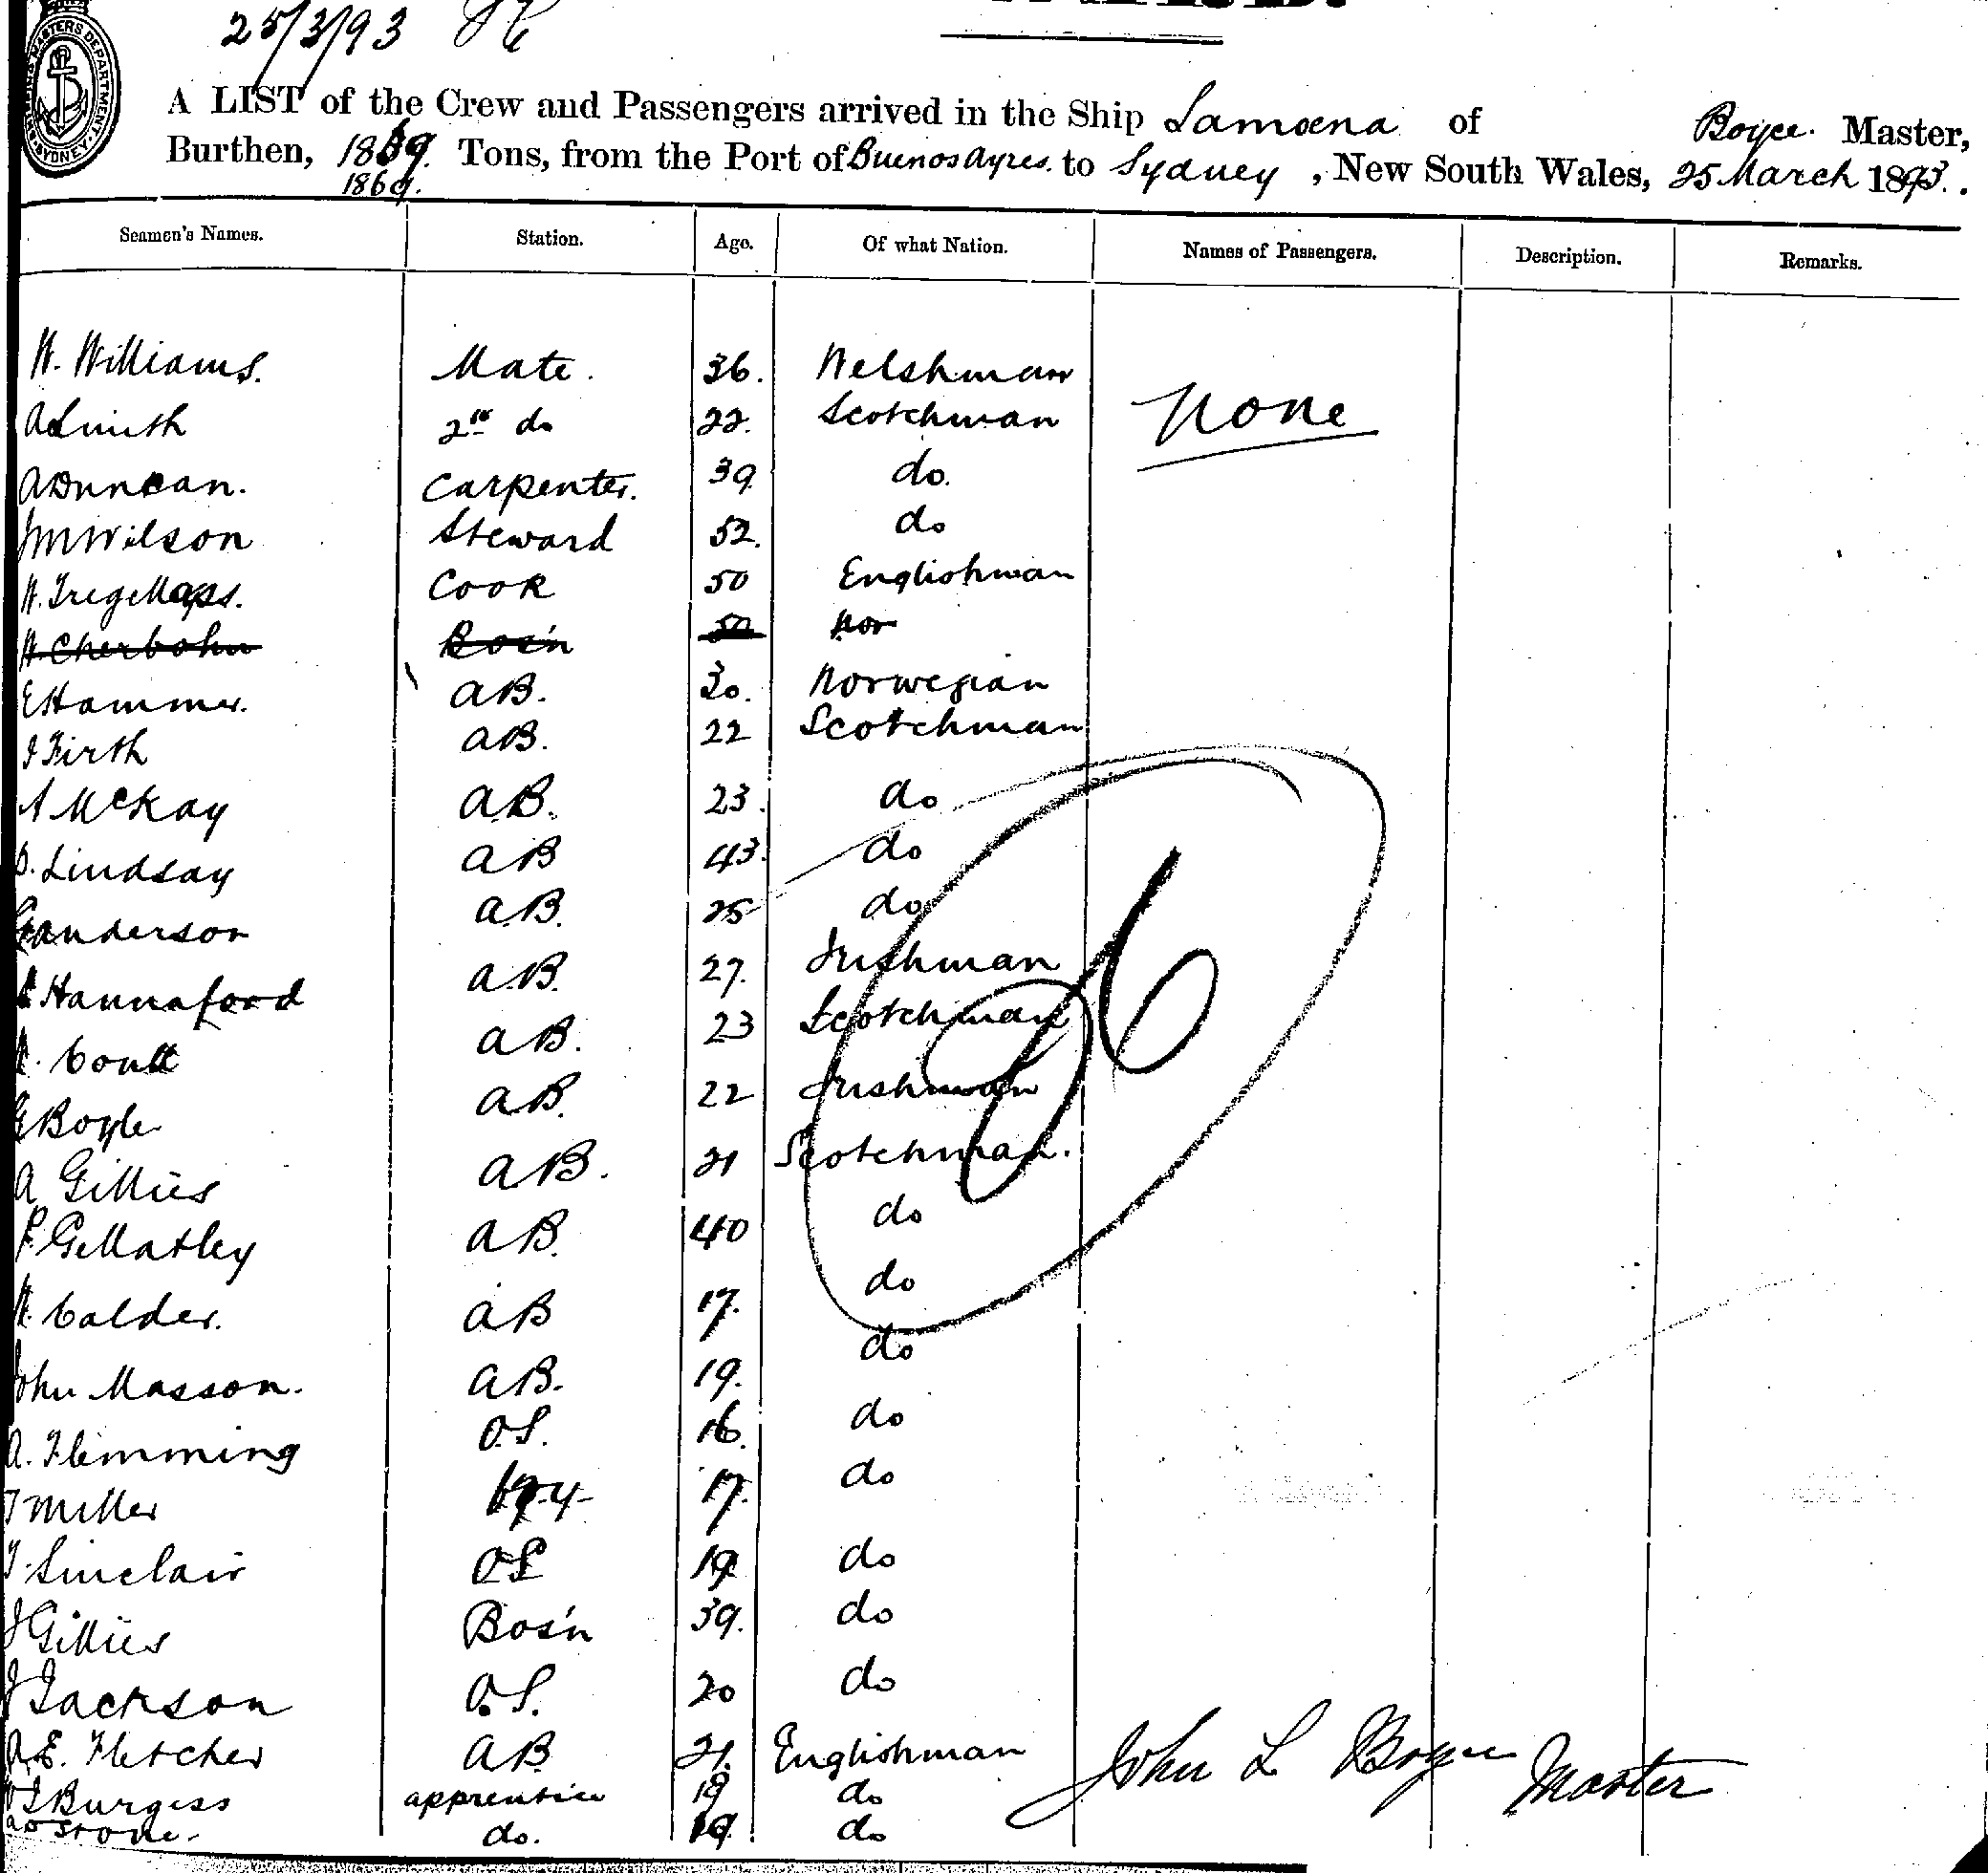 25/3/93
SHIPPING MASTERS DEPARTMENT SYDNEY
A LIST of the Crew and Passengers arrived in the Ship Lamoena of Boyce. Master,
Burthen, 1869. Tons, from the Port of Buenos Ayres. to Sydney, New South Wales, 25 March 1893.
1869.
Seamen's Names. Station. Age. Of what Nation. Names of Passengers. Description. Remarks.
W. Williams. Mate. 36. Welshman
A Smith 2nd do 22. Scotchman None
A Duncan. Carpenter. 39 do.
J M Wilson Steward 52. do
W. Tregellass. Cook 50 Englishman
W. Cherbohn Bos'n 50 Nor
E Hammer. AB. 30. Norwegian
J Firth AB. 22 Scotchman
A McKay AB. 23. do
D. Lindsay AB 43. do
G Anderson AB. 25 do
Hannaford AB. 27. Irishman
Coutt AB. 23 Scotchman
G Boyle AB. 22 Irishman
A Gillies AB. 21 Scotchman.
P. Gellatley AB. 40 do
W. Calder. AB 17. do
John Masson. AB. 19. do
A. Flemming O.S. 16. do
T Miller 17. do
T. Sinclair OS 19 do
J Gillies Bos'n 39. do
J Jackson O.S. 20 do
A. E. Fletcher AB 21. Englishman
Burgess apprentice 19 do
Stone. do. 19. do
26
John L Boyce Master